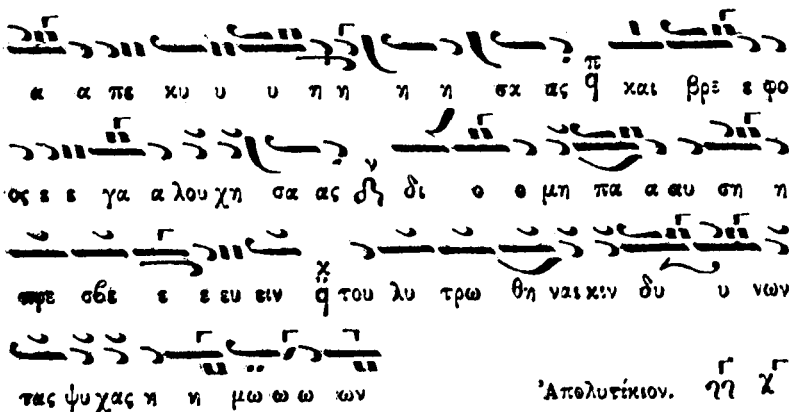 α α πε κυ υ υ η η η η σα ας π q και βρε ε φο
ος ε ε γα α λου χη σα ας ν δι ο ο μη πα α αυ ση η
πρε σβε ε ε ευ ειν κ q του λυ τρω θη ναι κιν δυ υ νων
τας ψυ χας η η μω ω ω ων Ἀπολυτίκιον.